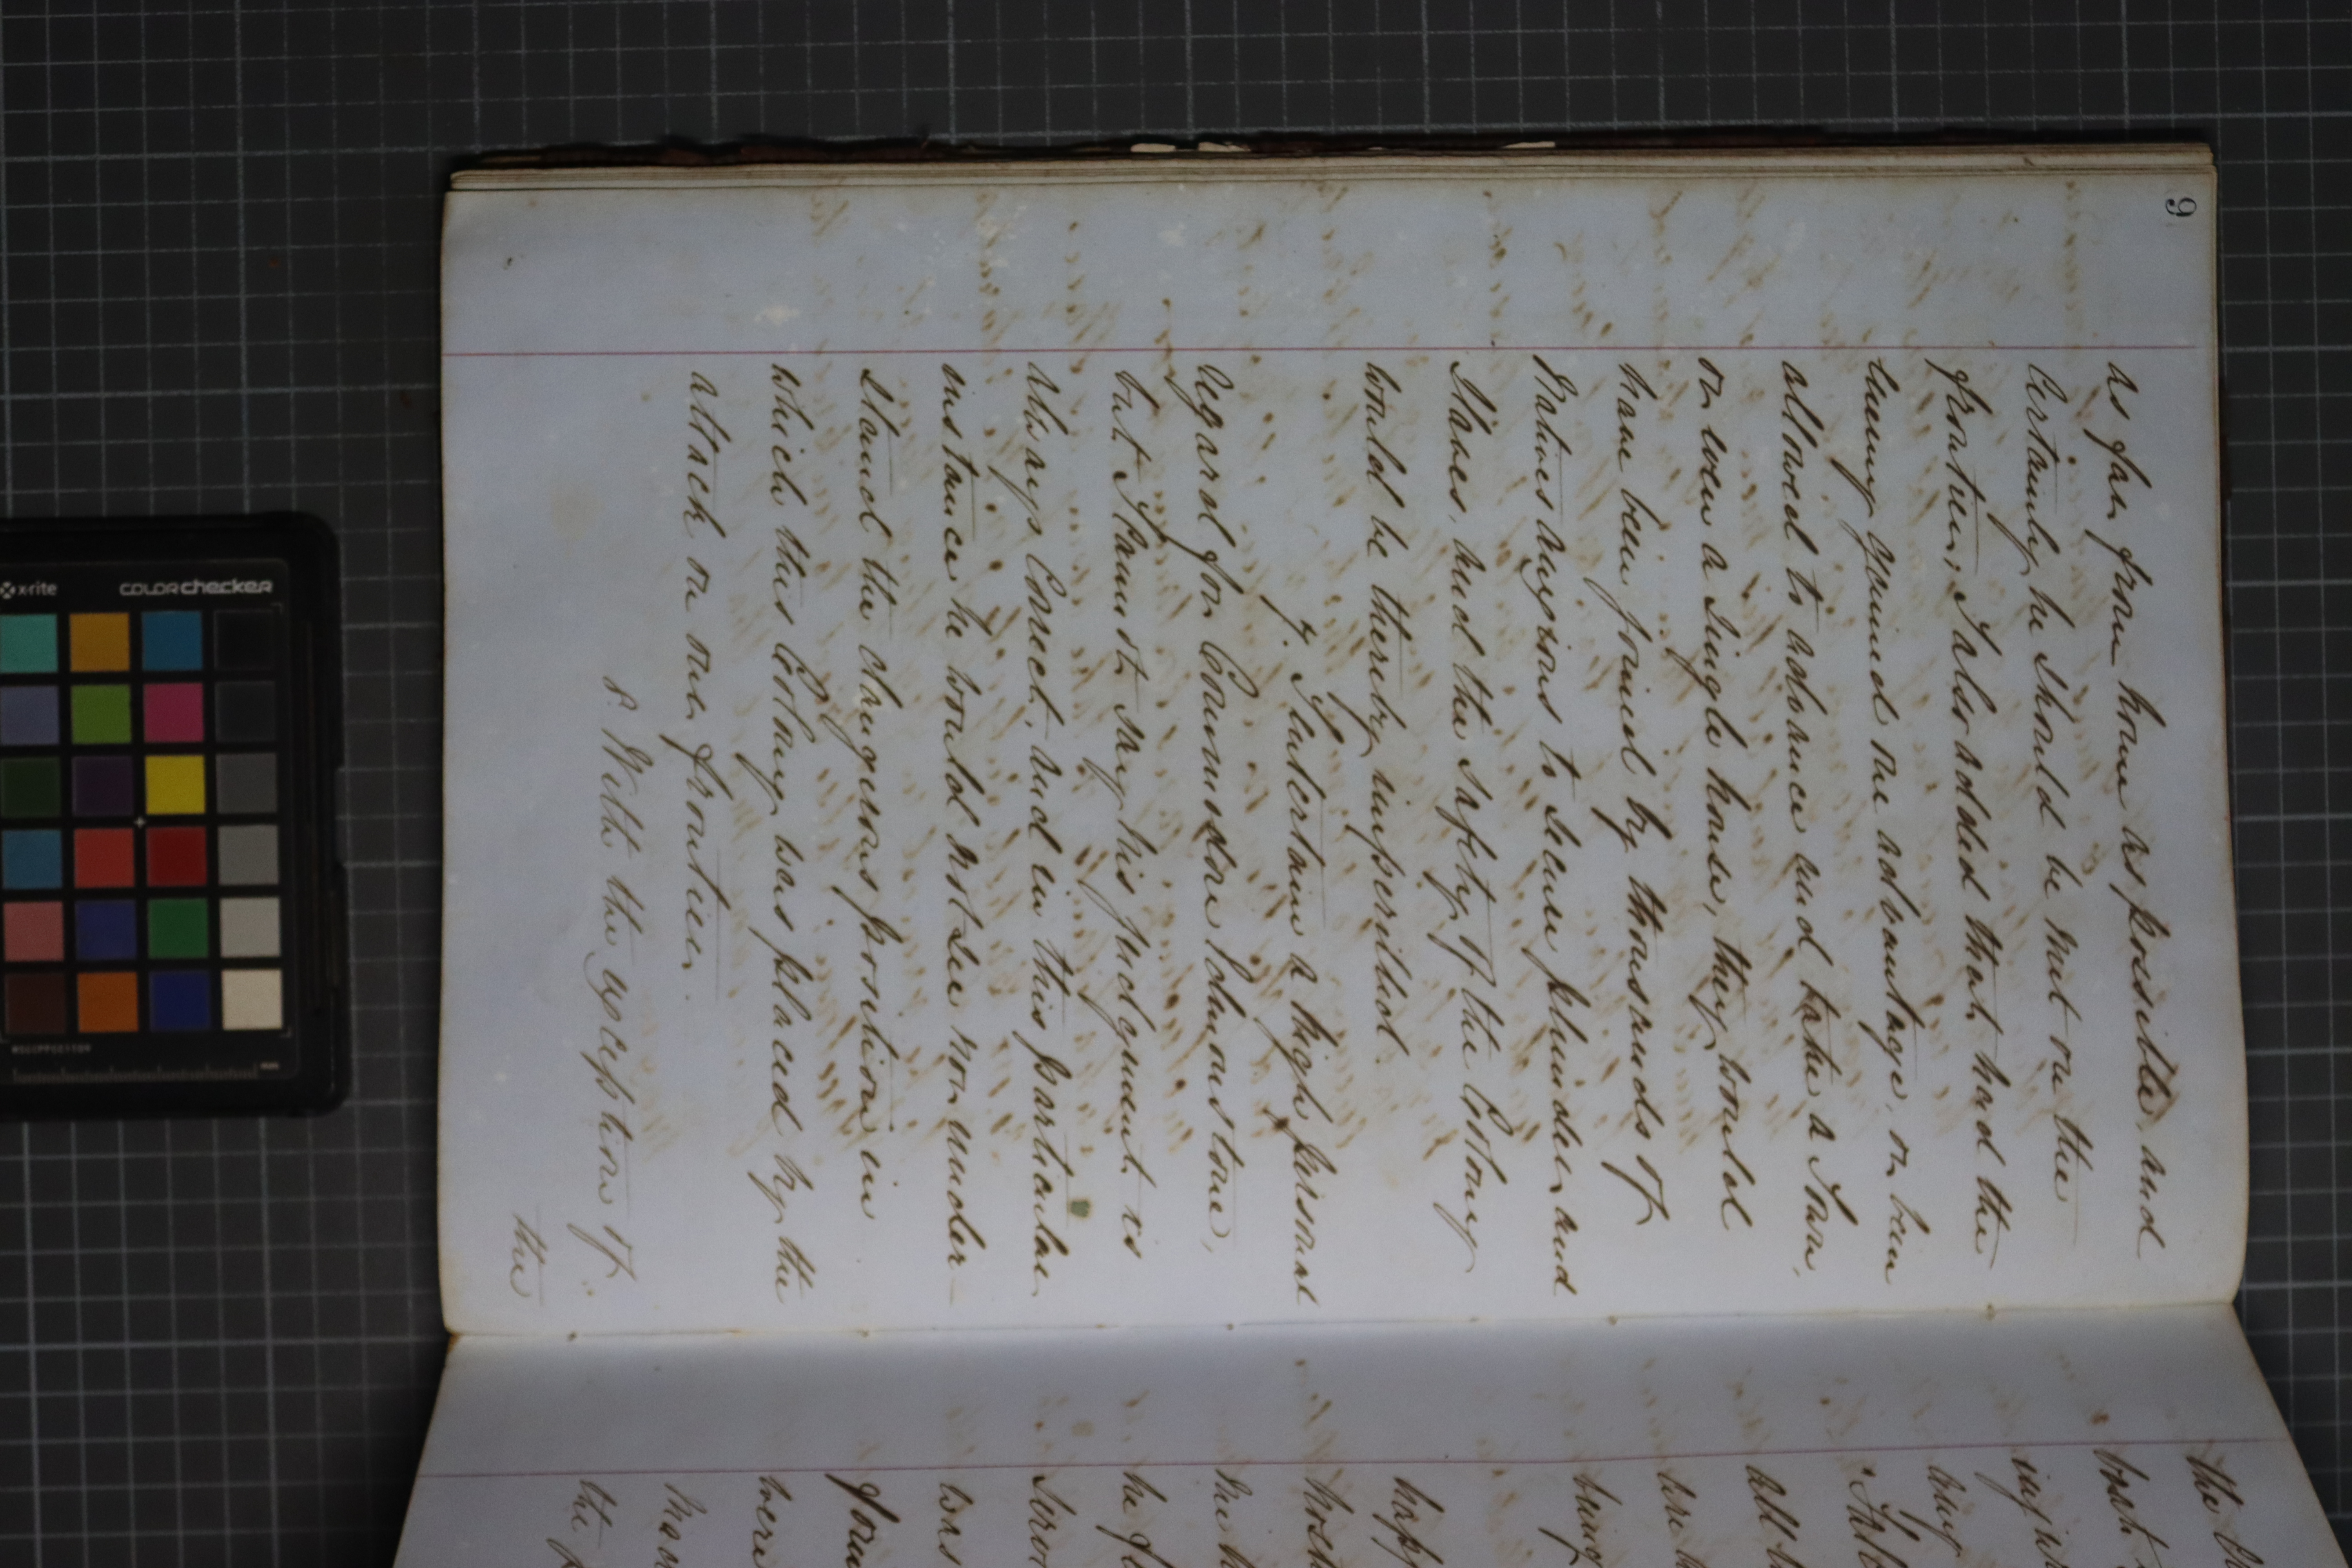 9
as far from home as possible, and
Certainly he should be met on the
frontier, I also added that, had the
Enemy gained one advantage, or been
allowed to advance and take a Town,
or even a Single house, they would
have been joined by thousands of
Natives anxious to secure plunder and
Slaves, and the Safety of the Colony
would be thereby imperilled.
7. I entertain a high personal
regard for Commodore Edmonstone,
but I cannot say his judgment is
always Correct, and in this particular
instance he would not see nor under-
stand the dangerous position in
which this Colony was placed by the
attack on our frontier.
8. With the exception of
the
the
boat
any
all
being
happ
he
was
were
the
x-rite
COLORchecker